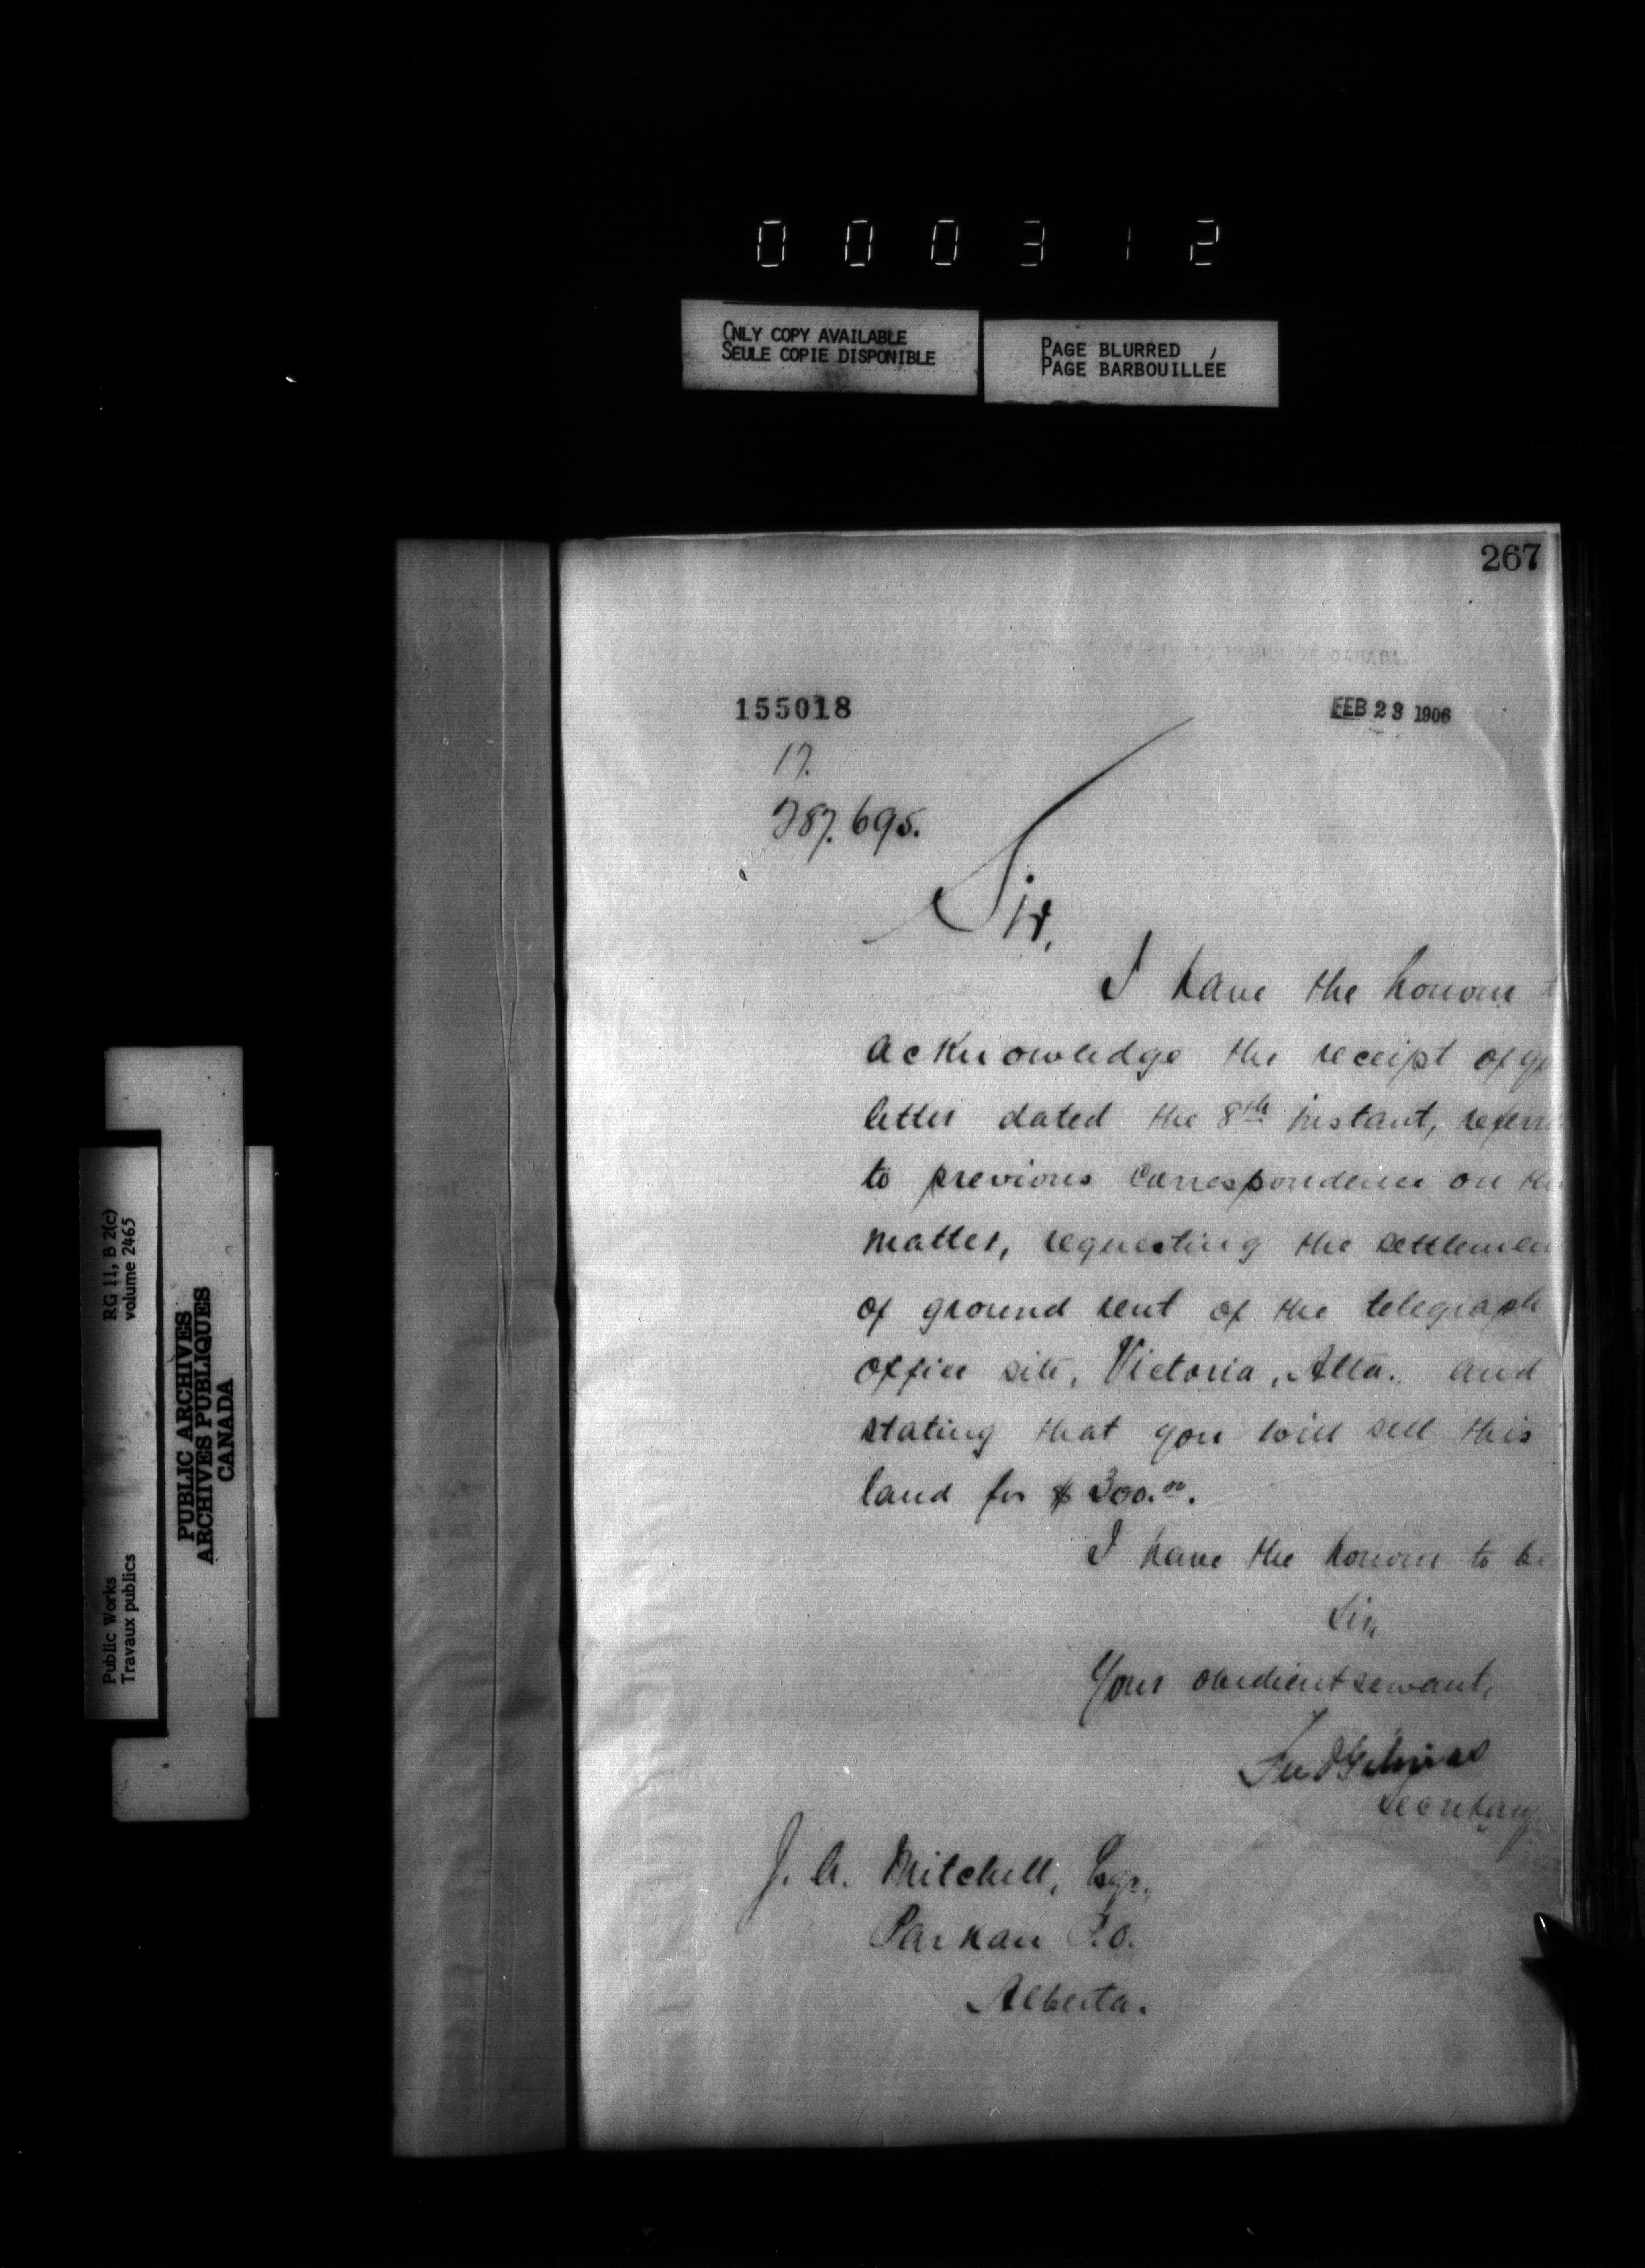 000312
ONLY COPY AVAILABLE
SEULE COPIE DISPONIBLE
PAGE BLURRED
PAGE BARBOUILLÉE
267
155018
FEB 23 1906
17.
287.695.
Sir,
I have the honour t
acknowledge the receipt of yo
letter dated the 8th instant, referri
to previous correspondence on the
matter, requesting the settlemen
of ground rent of the telegraph
office site, Victoria, Alta. and
stating that you will sell this
land for $300.00.
I have the honour to be
Sir,
Your obedient servant,
Secretary
J. A. Mitchell, Esqr.,
Parkan P.O.
Alberta.
RG 11, B 2(c)
volume 2465
Public Works
Travaux publics
PUBLIC ARCHIVES
ARCHIVES PUBLIQUES
CANADA